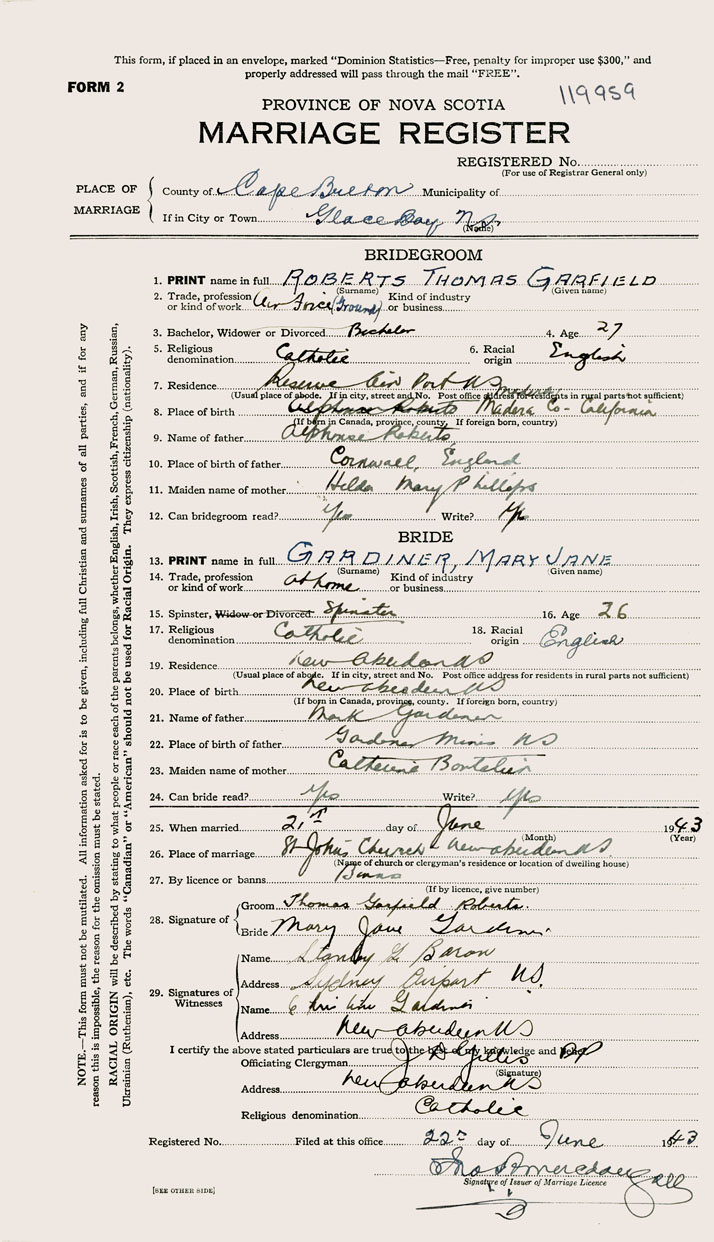 This form, if placed in an envelope, marked "Dominion Statistics—Free, penalty for improper use $300," and
properly addressed will pass through the mail "FREE".
FORM 2
119959
PROVINCE OF NOVA SCOTIA
MARRIAGE REGISTER
REGISTERED No.
(For use of Registrar General only)
PLACE OF MARRIAGE
County of Cape Breton Municipality of
If in City or Town Glace Bay N.S.
(Name)
BRIDEGROOM
1. PRINT name in full ROBERTS THOMAS GARFIELD
(Surname) (Given name)
2. Trade, profession or kind of work Air Force (Ground) Kind of industry or business
3. Bachelor, Widower or Divorced Bachelor 4. Age 27
5. Religious denomination Catholic 6. Racial origin English
7. Residence Reserve Air Port NS
(Usual place of abode. If in city, street and No. Post office address for residents in rural parts not sufficient)
8. Place of birth Alphonse Roberts Madera Co- California
(If born in Canada, province, county. If foreign born, country)
9. Name of father Alphonse Roberts
10. Place of birth of father Cornwall, England
11. Maiden name of mother Hilda Mary Phillips
12. Can bridegroom read? Yes Write? Yes
BRIDE
13. PRINT name in full GARDINER, MARY JANE
(Surname) (Given name)
14. Trade, profession or kind of work at home Kind of industry or business
15. Spinster, Widow or Divorced Spinster 16. Age 26
17. Religious denomination Catholic 18. Racial origin English
19. Residence New Aberdeen NS
(Usual place of abode. If in city, street and No. Post office address for residents in rural parts not sufficient)
20. Place of birth New Aberdeen NS
(If born in Canada, province, county. If foreign born, country)
21. Name of father Mark Gardener
22. Place of birth of father Gardener Mines NS
23. Maiden name of mother Catherine
24. Can bride read? Yes Write? Yes
25. When married 21st day of June 1943
(Month) (Year)
26. Place of marriage St John's Church New Aberdeen NS.
(Name of church or clergyman's residence or location of dwelling house)
27. By licence or banns Banns
(If by licence, give number)
28. Signature of
Groom Thomas Garfield Roberts.
Bride Mary Jane Gardiner
29. Signatures of Witnesses
Name Stanley Baron
Address Sydney Airport NS.
Name Gardiner
Address New Aberdeen NS
I certify the above stated particulars are true to the best of my knowledge and belief
Officiating Clergyman Gillis PP
(Signature)
Address New Aberdeen NS
Religious denomination Catholic
Registered No. Filed at this office 22nd day of June 1943
Signature of Issuer of Marriage Licence
[SEE OTHER SIDE]
NOTE.—This form must not be mutilated. All information asked for is to be given, including full Christian and surnames of all parties, and if for any
reason this is impossible, the reason for the omission must be stated.
RACIAL ORIGIN will be described by stating to what people or race each of the parents belongs, whether English, Irish, Scottish, French, German, Russian,
Ukrainian (Ruthenian), etc. The words "Canadian" or "American" should not be used for Racial Origin. They express citizenship (nationality).